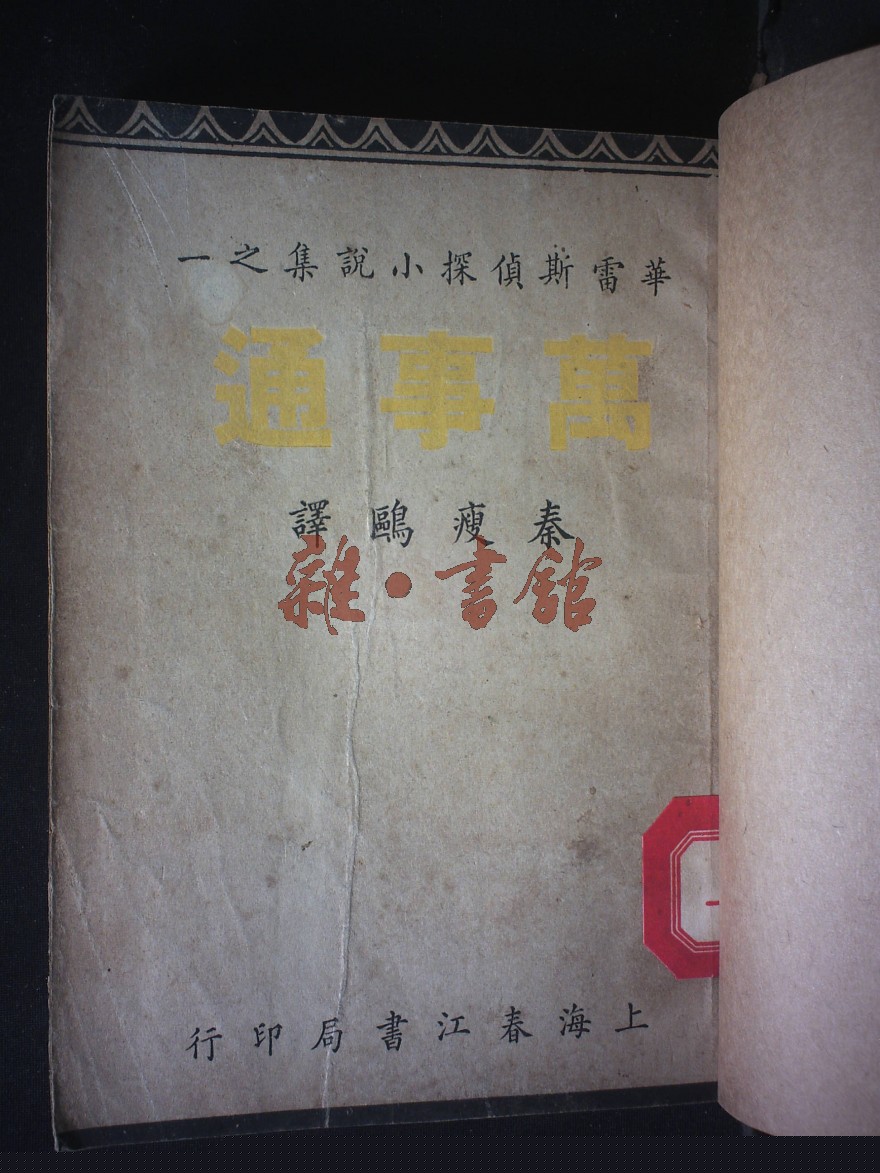 華雷斯偵探小說集之一
萬事通
秦瘦鷗譯
雜·書館
上海春江書局印行